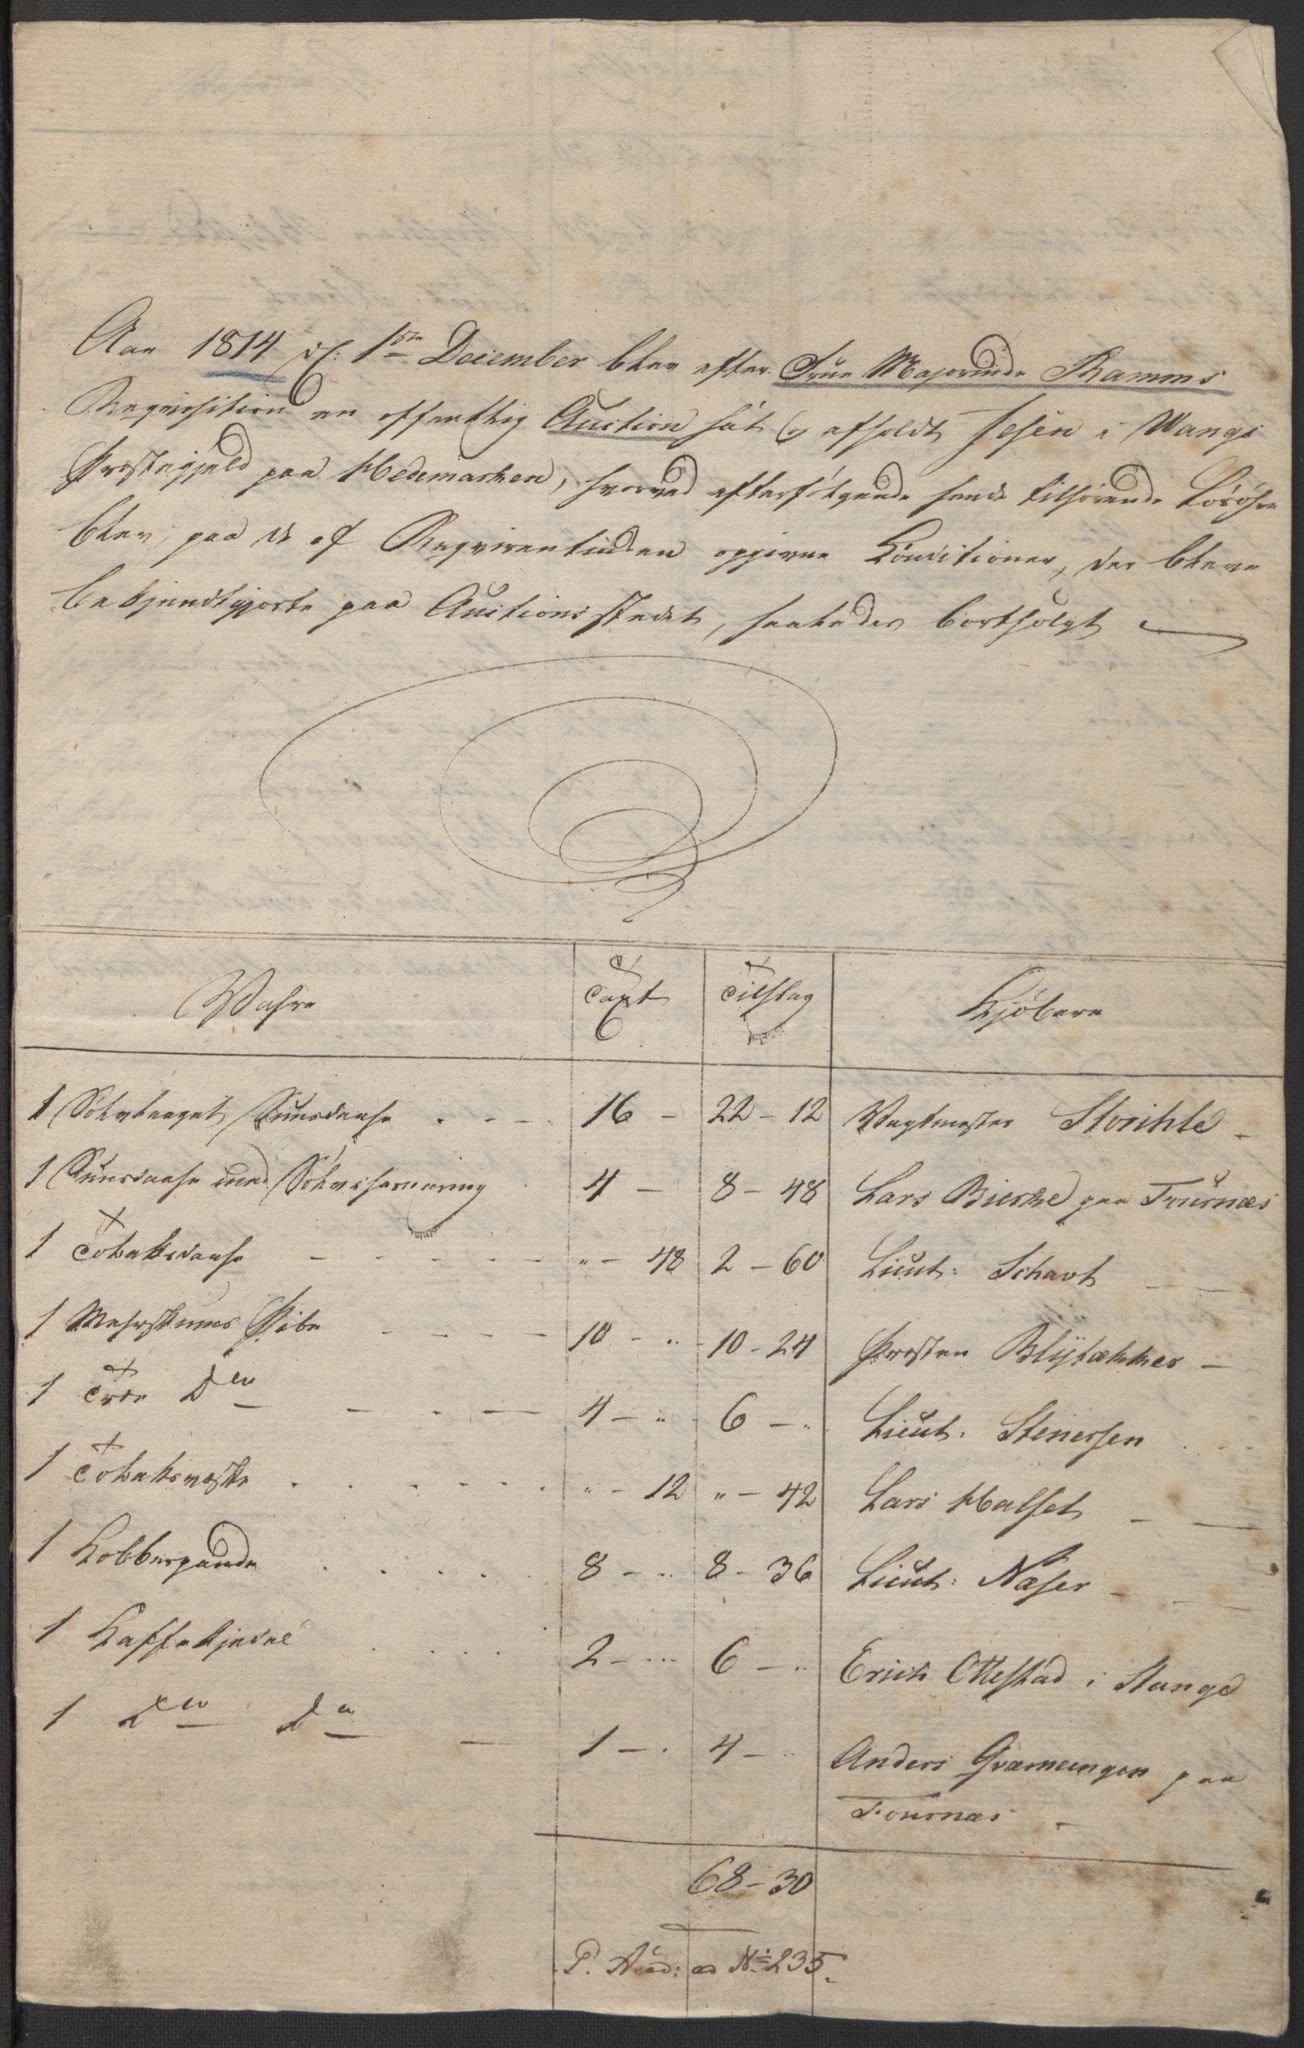 Aar 1814 d: 1ste December blev efter Frue Majorinde Ramms
Requisition en offentlig Auction sat og afholdt Jesen i Wangs
Præstegjeld paa Hedemarken, hvorved efterfølgende hende tilhørende Løsøre
blev, paa de af Reqvirentinden opgivne Conditioner, der bleve
bekjendtgjorte paa Auctionsstedet, saaledes bortsolgt
Vahre Taxt Tilslag Kjøbere
1 Sølvbeslaget Snusdaase 16 - 22 - 12 Vagtmester
1 Snusdaase med Sølvcharnering 4 - 8 - 48 Lars Bierke paa Fournæs
1 Tobaksdaase " - 48 2 - 60 Lieut: Schavt
1 Mehrskums Pibe 10 - " 10 - 24 Præsten Blytækker
1 Træ Do 4 - " 6 - " Lieut. Stenersen
1 Tobaksæske " - 12 " - 42 Lars Halset
1 Kobberpande 8 - " 8 - 36 Lieut: Næser
1 Kaffekjedel 2 - " 6 - " Erich Ottestad i Stange
1 Do Do 1 - " 4 - " Anders Qværnemgen paa
Fournæs
68 - 30
P. Aud: ad No 235.